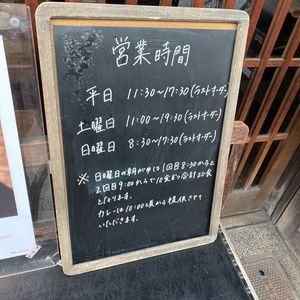 営業時間
平日 11:30〜17:30(ラストオーダー)
土曜日 11:00〜19:30(ラストオーダー)
日曜日 8:30〜17:30(ラストオーダー)
※ 日曜日の朝がゆは1回目8:30からと
2回目9:00からで10食ずつ合計20食
となります。
カレーは10:00頃から提供させて
いただきます。